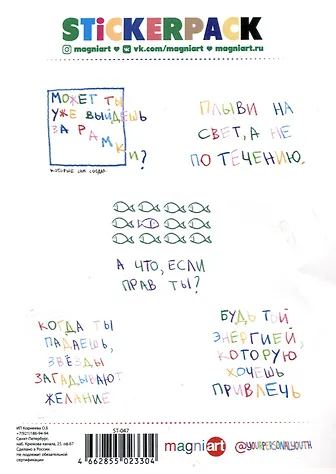 STiCKERPACK
magniart ♥ vk.com/magniart ♥ magniart.ru
МОЖЕТ ТЫ
УЖЕ ВЫЙДЕШЬ
ЗА РАМКИ?
КОТОРЫЕ САМ СОЗДАЛ
ПЛЫВИ НА
СВЕТ, А НЕ
ПО ТЕЧЕНИЮ.
А ЧТО, ЕСЛИ
ПРАВ ТЫ?
КОГДА ТЫ
ПАДАЕШЬ,
ЗВЁЗДЫ
ЗАГАДЫВАЮТ
ЖЕЛАНИЕ
БУДЬ ТОЙ
ЭНЕРГИЕЙ,
КОТОРУЮ
ХОЧЕШЬ
ПРИВЛЕЧЬ
ИП Корнеева О.В.
+7(921)186-94-94
Санкт-Петербург,
наб. Крюкова канала, 25, оф.67
Сделано в России.
Не подлежит обязательной
сертификации
ST-047
4 662855 023304
magniart
@YOURPERSONALYOUTH